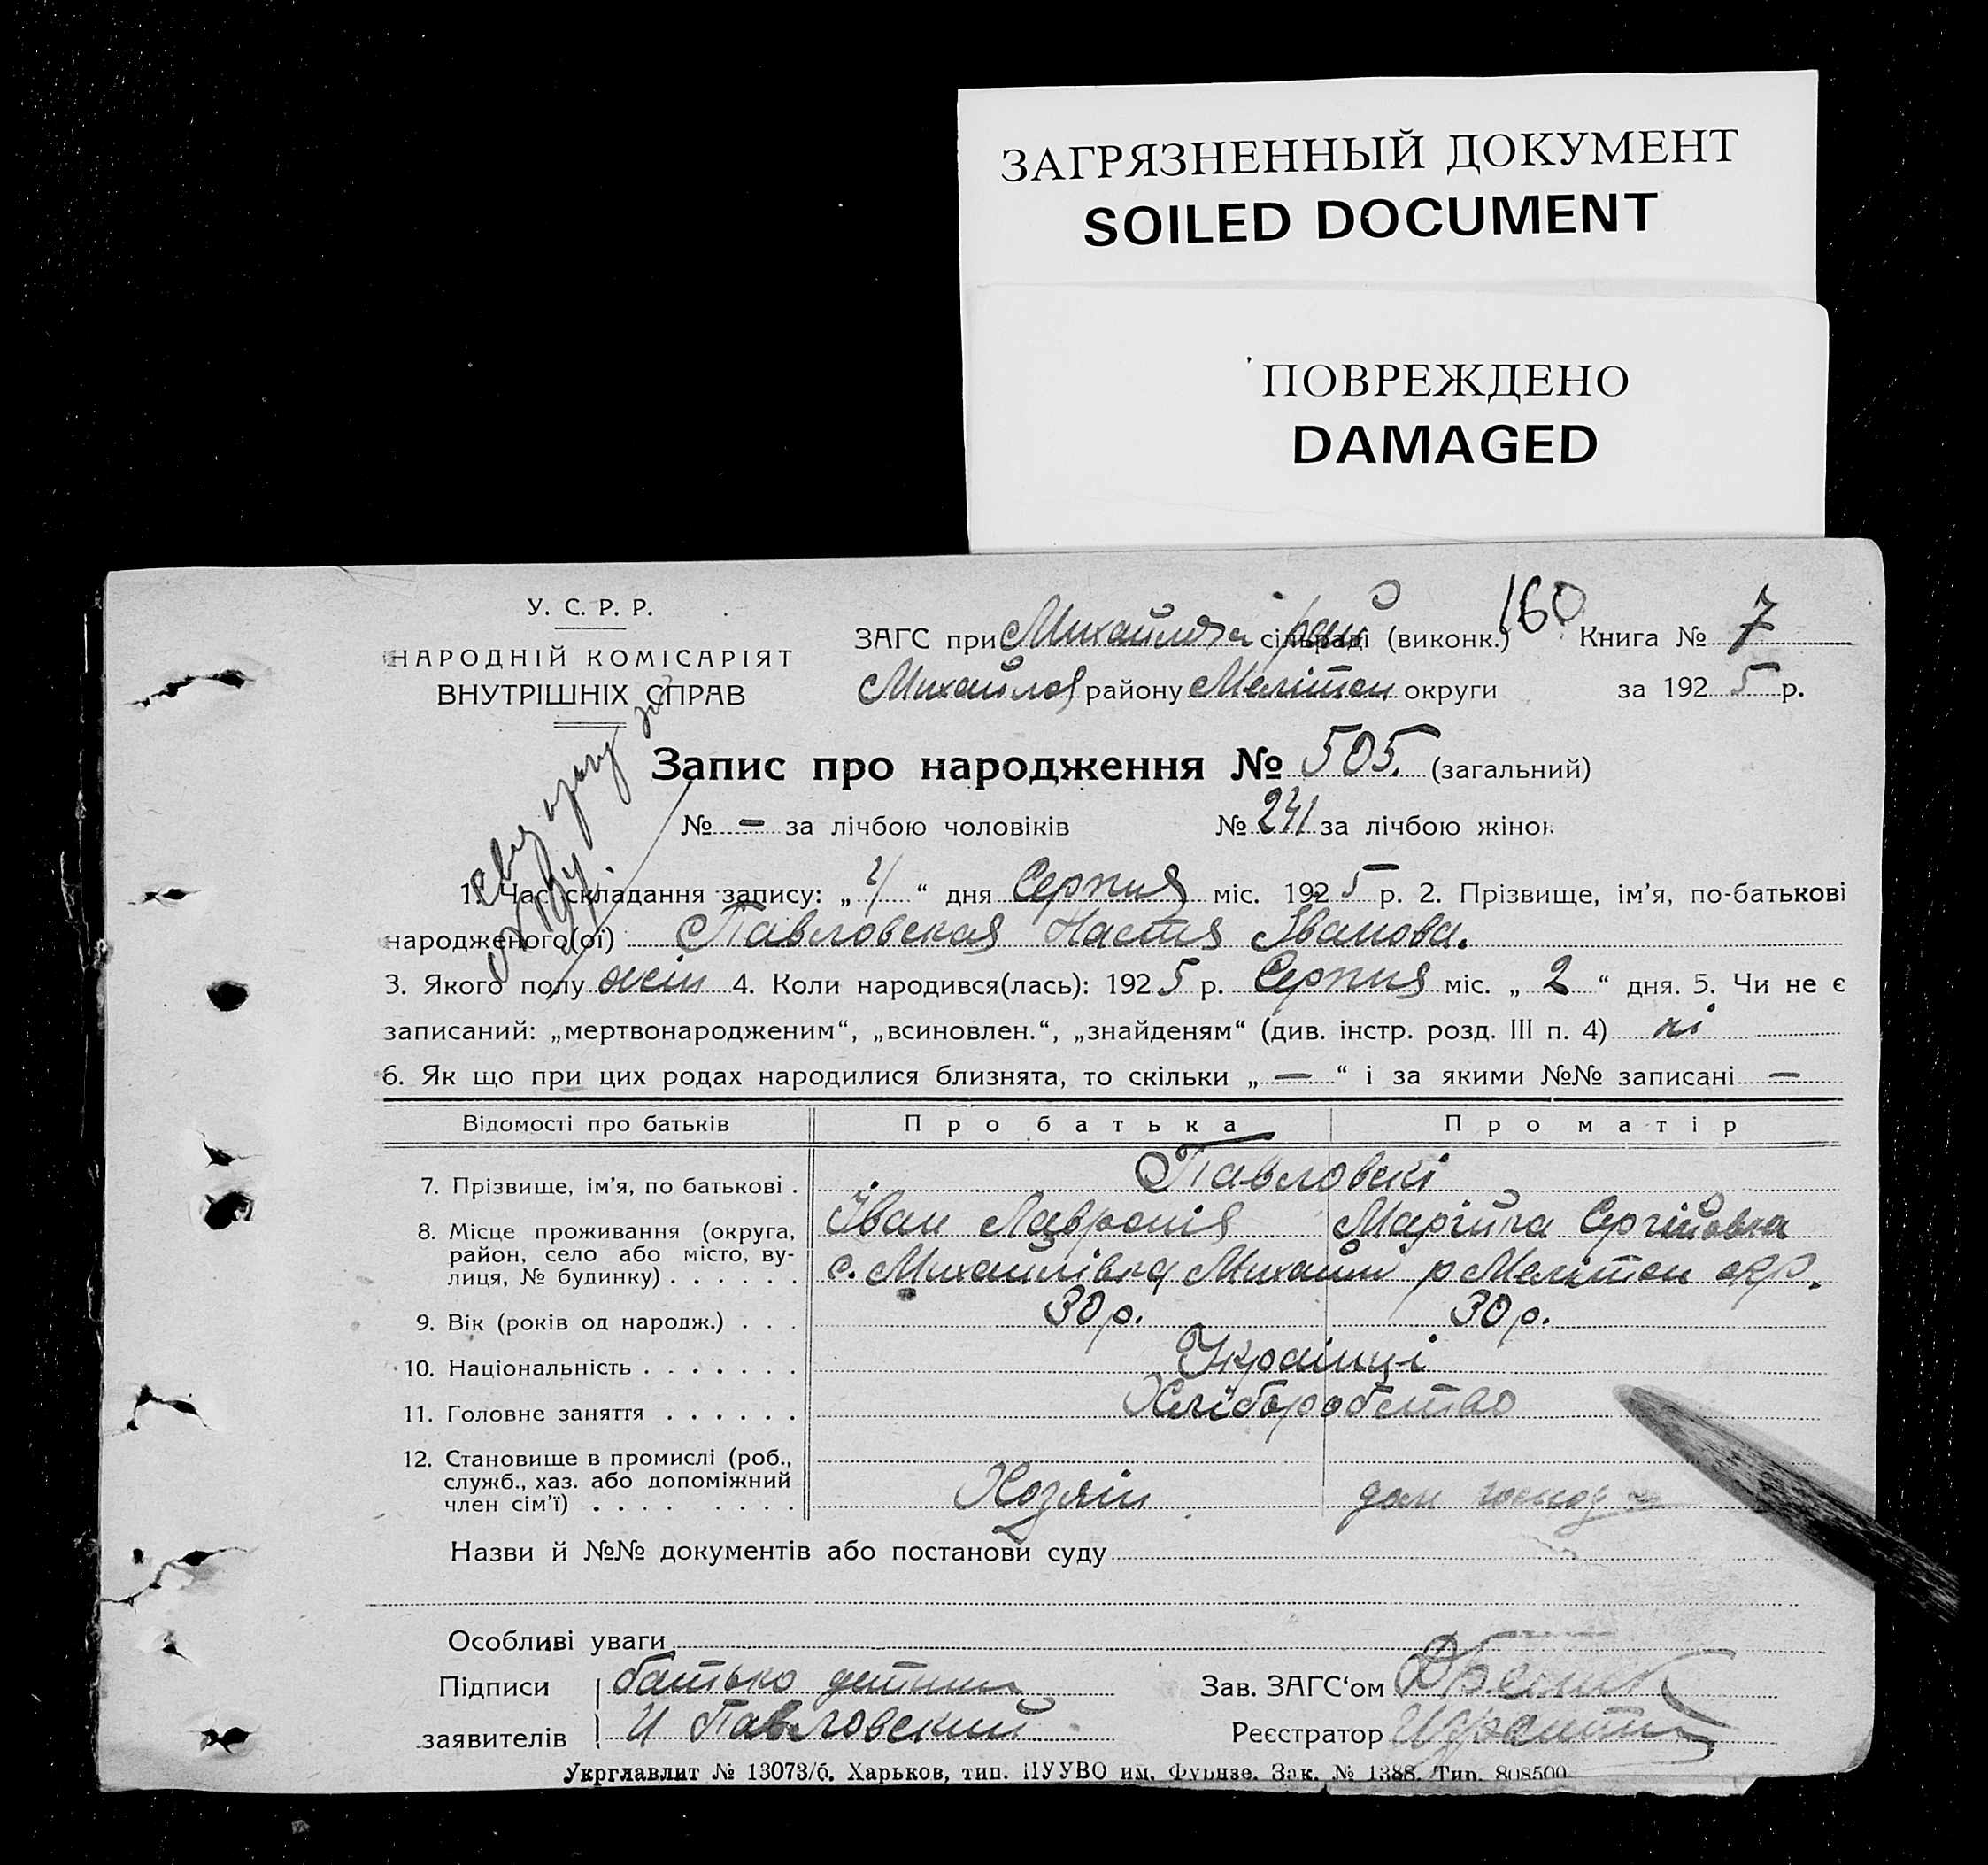 ЗАГРЯЗНЕННЫЙ ДОКУМЕНТ
SOILED DOCUMENT
ПОВРЕЖДЕНО
DAMAGED
160
У. С. Р. Р.
НАРОДНІЙ КОМІСАРІЯТ
ВНУТРІШНІХ СПРАВ
ЗАГС при сільраді (виконк.) Книга № 7
Михайлов району Мелітоп округи за 1925 р.
Запис про народження № 505. (загальний)
№ — за лічбою чоловіків № 241 за лічбою жінок
1. Час складання запису: „ “ дня Серпня міс. 1925 р. 2. Прізвище, ім’я, по-батькові
народженого(ої) Павловская Настя Іванова.
3. Якого полу жін 4. Коли народився(лась): 1925 р. Серпня міс. „ 2 “ дня. 5. Чи не є
записаний: „мертвонародженим“, „всиновлен.“, „знайденям“ (див. інстр. розд. III п. 4) ні
6. Як що при цих родах народилися близнята, то скільки „ — “ і за якими №№ записані —
Відомості про батьків Про батька Про матір
7. Прізвище, ім’я, по батькові . Павловскі
Іван Лавронія Марійка Сергійовна
8. Місце проживання (округа,
район, село або місто, ву-
лиця, № будинку) . . . . . . с. Михайлівка Михайлі р Мелітоп окр.
9. Вік (років од народж.) . . . 30 р. 30 р.
10. Національність . . . . . . . Українці
11. Головне заняття . . . . . . Хліборобство
12. Становище в промислі (роб.,
служб., хаз. або допоміжний
член сім’ї) . . . . . . . . . Хозяін дом господ
Назви й №№ документів або постанови суду
Особливі уваги
Підписи батько
заявителів И Павловский
Зав. ЗАГС‘ом
Реєстратор
Укрглавлит № 13073/б. Харьков, тип. ПУУВО им. Фрунзе. Зак. № 1388. Тир. 808500